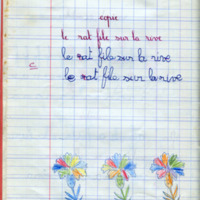 le rat file sur la rive
le rat file sur la rive
le rat file sur la rive